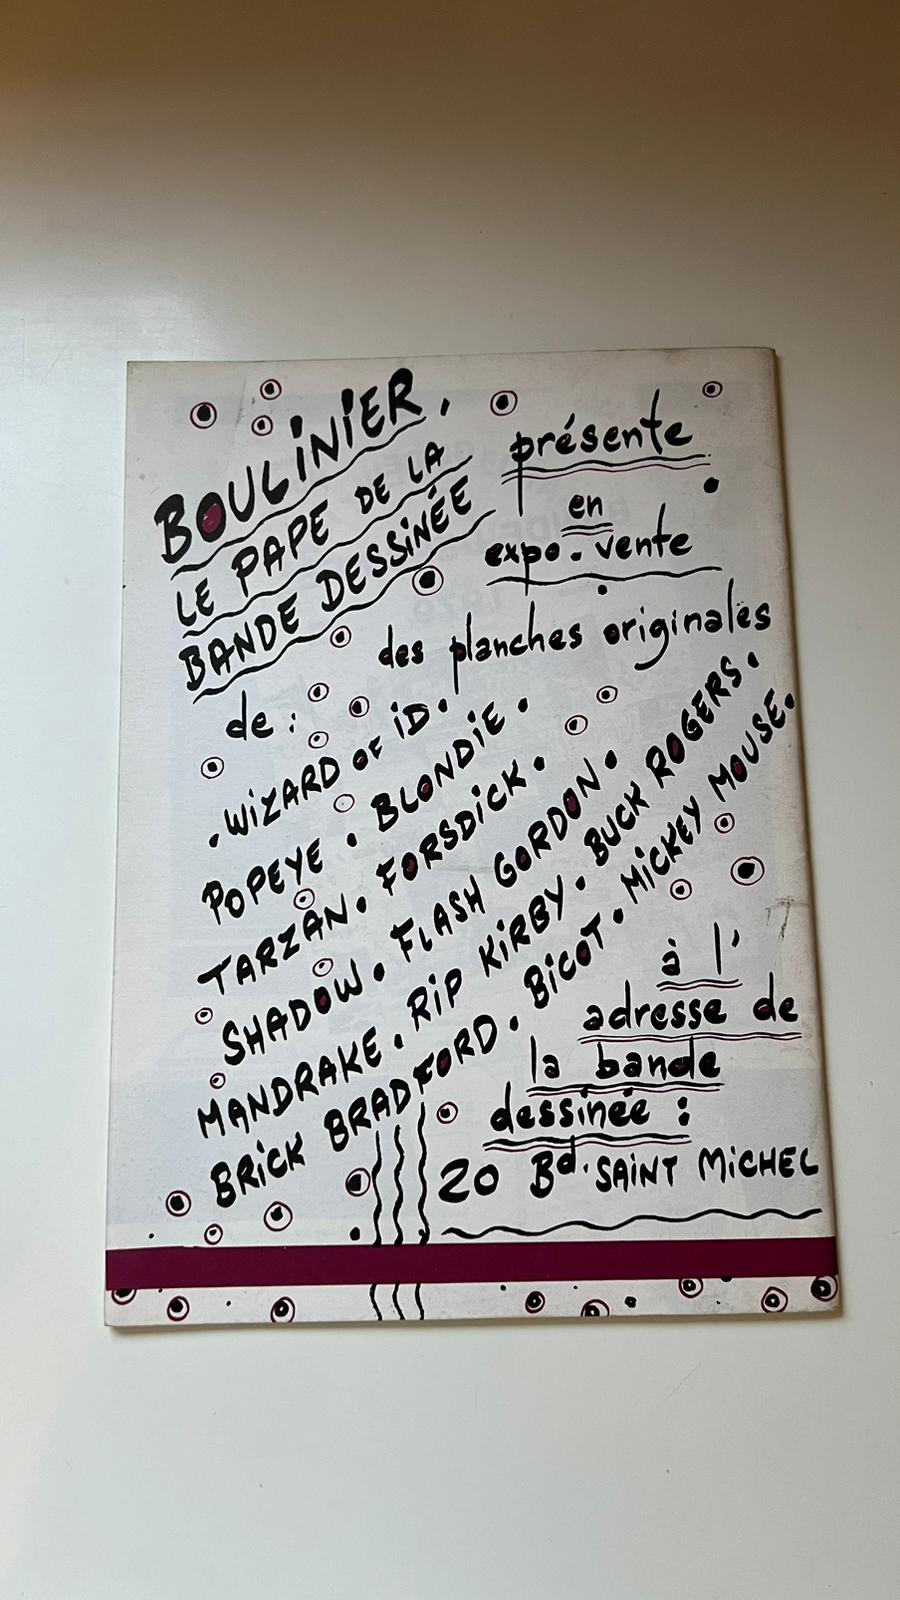 BOULINIER,
LE PAPE DE LA
BANDE DESSINÉE
présente
en
expo-vente
des planches originales
de :
. WIZARD OF ID .
POPEYE . BLONDIE .
TARZAN . FORSDICK .
SHADOW . FLASH GORDON .
MANDRAKE . RIP KIRBY . BUCK ROGERS .
BRICK BRADFORD . BICOT . MICKEY MOUSE .
à l'
adresse de
la bande
dessinée :
20 Bd. SAINT MICHEL